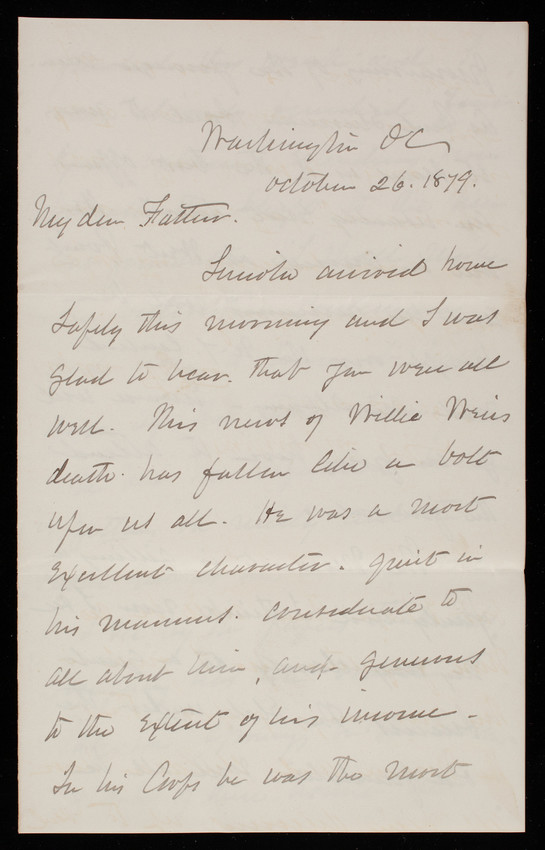 Washington DC
October 26. 1879.
My dear Father.
Lincoln arrived home
safely this morning and I was
glad to hear. that you were all
well. This news of Willie Weirs
death. has fallen like a bolt
upon us all. He was a most
Excellent character. quiet in
his manners. considerate to
all about him, and generous
to the Extent of his income.
In his Corps he was the most